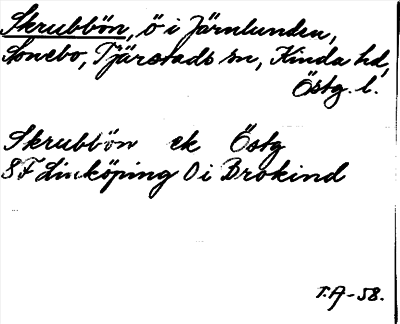 Skrubbön, ö i Järnlunden,
Sonebo, Tjärstads sn, Kinda hd,
Östg. l.
Skrubbön ek Östg
8F Linköping O i Brokind
T.A-58.